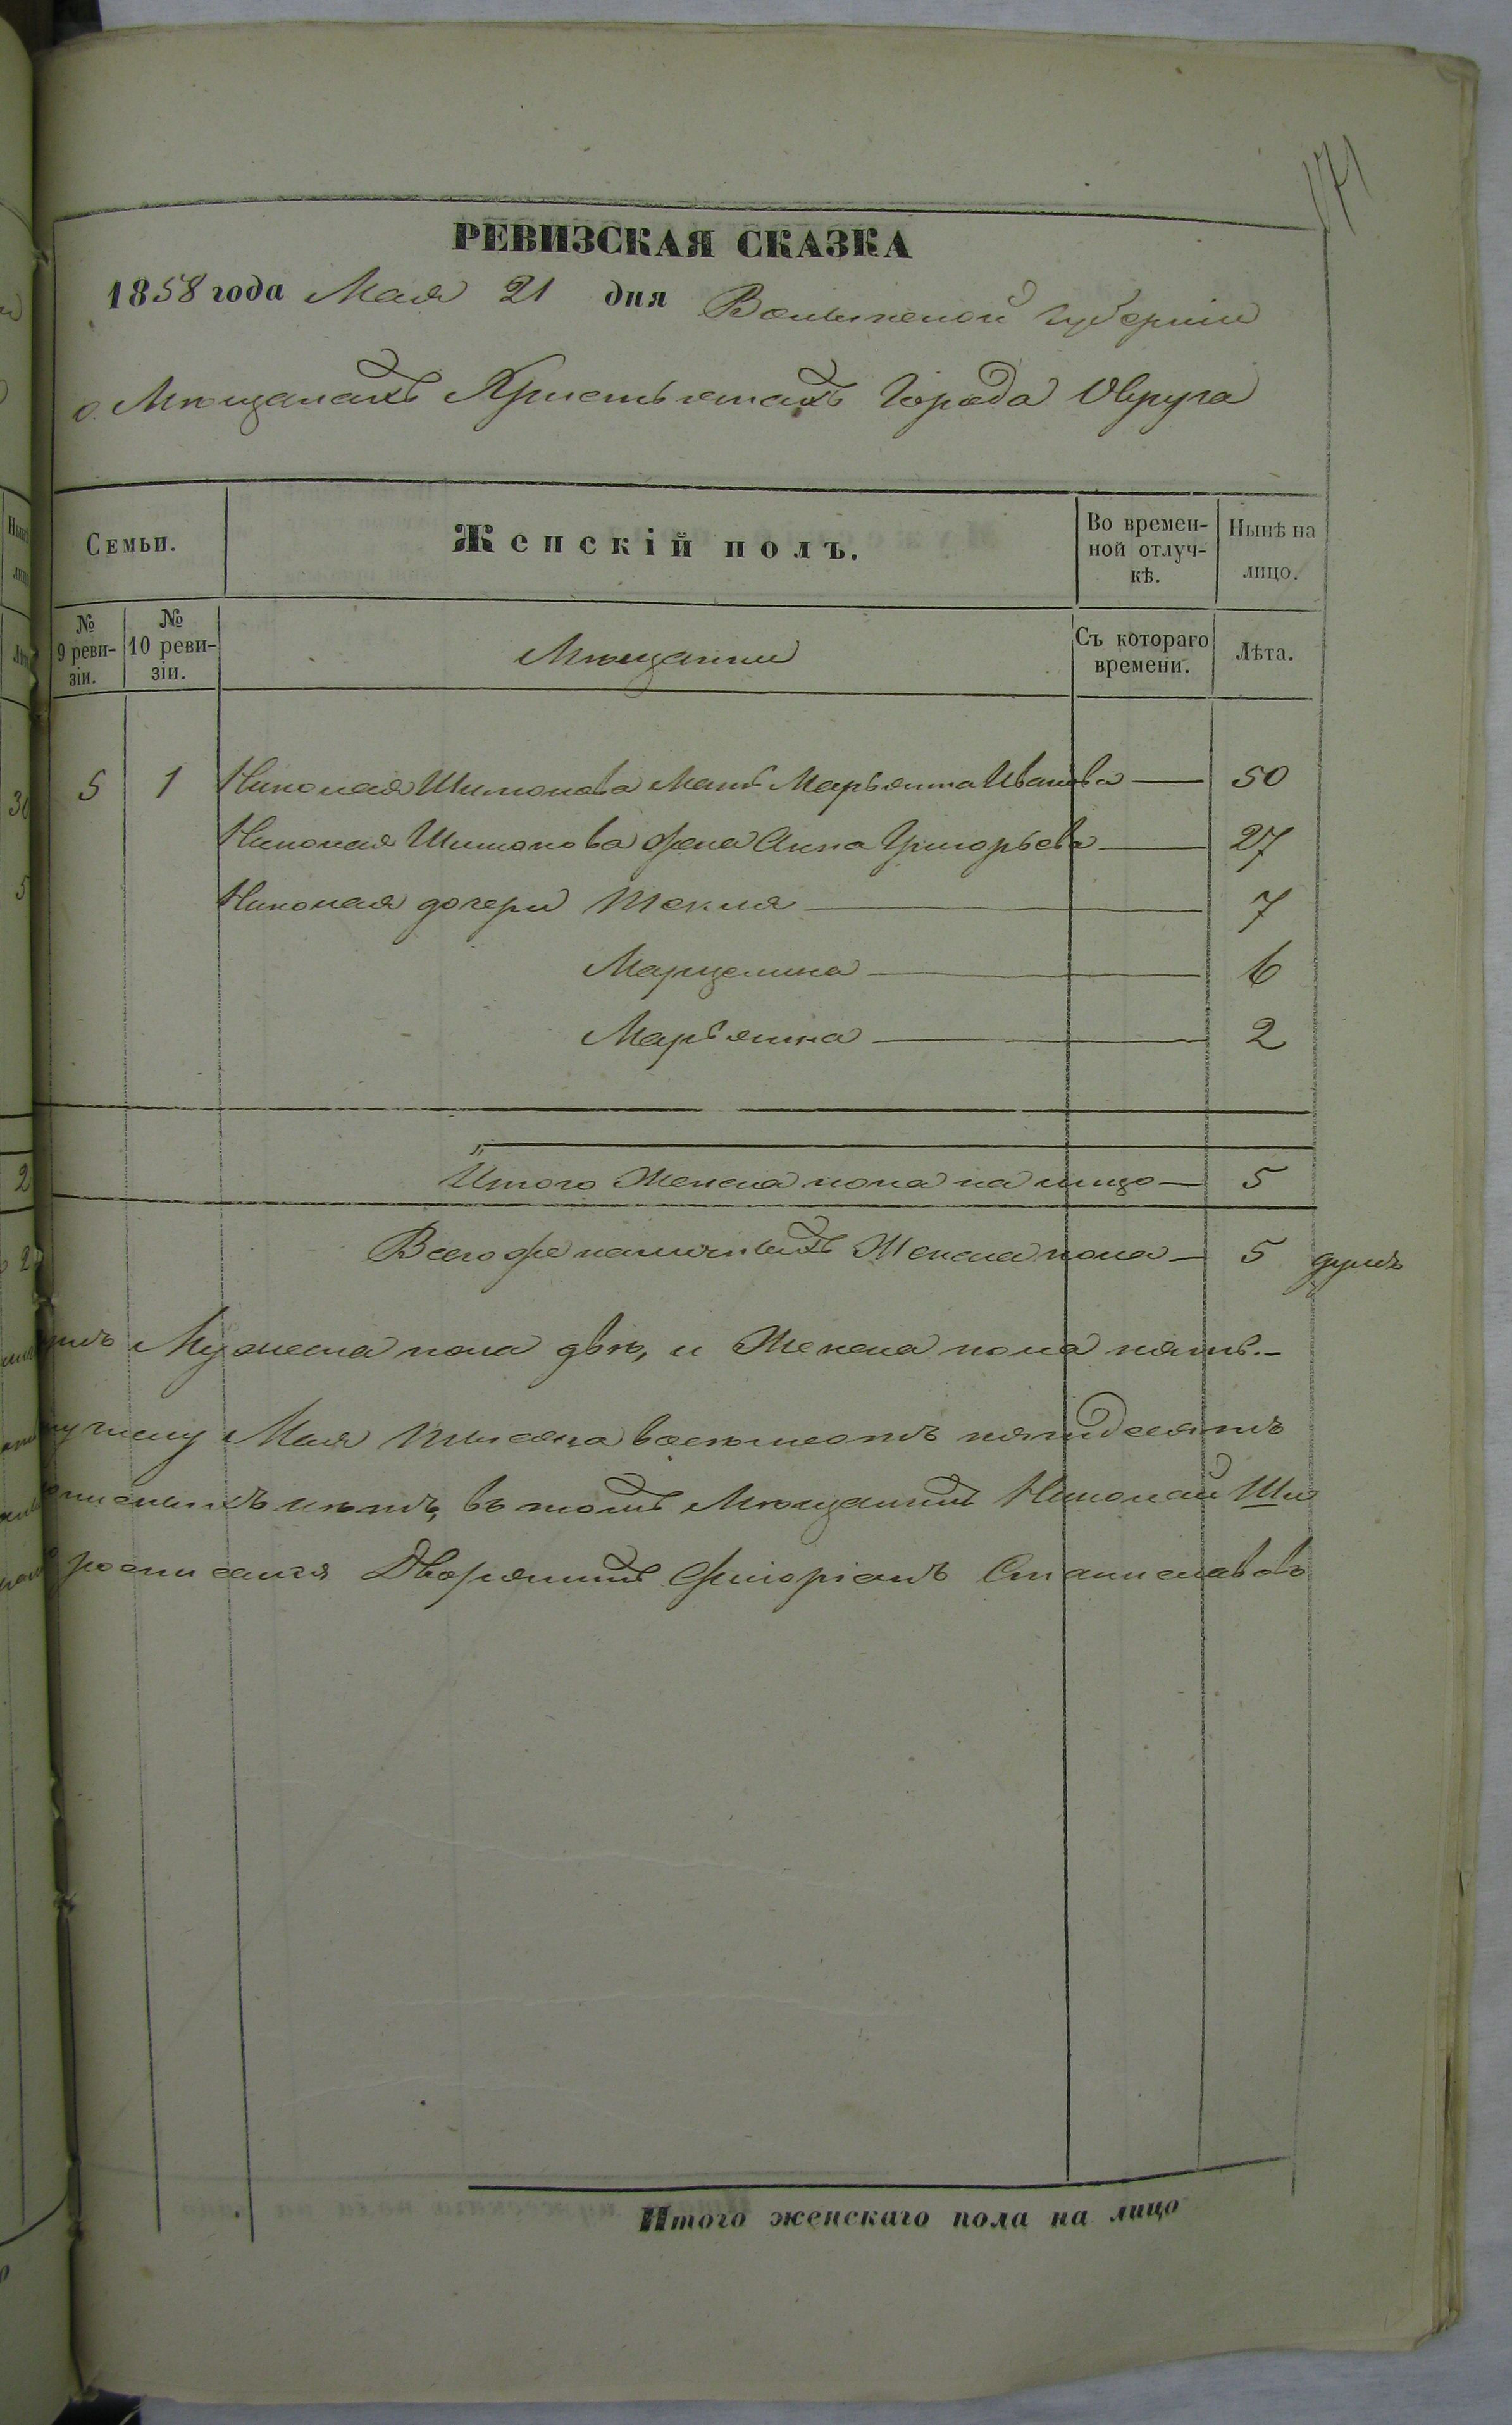 171
РЕВИЗСКАЯ СКАЗКА
1858 года Мая 21 дня Волынской Губерніи
о Мѣщанахъ Христьянахъ Города Овруча
Семьи.
Женскій полъ.
Во времен-
ной отлуч-
кѣ.
Нынѣ на
лицо.
№
9 реви-
зіи.
№
10 реви-
зіи.
Мѣщанки
Съ котораго
времени.
Лѣта.
5 1 Николая Шимонова Мать Марьянна Иванова 50
Николая Шимонова жена Анна Григорьева 27
Николая дочери Текля 7
Марцелина 6
Марьянна 2
Итого Женска пола на лицо 5
Всего же наличныхъ Женска пола 5 душъ
Мужеска пола двѣ, и Женска пола пять.
Мая тысяча восемьсотъ пятидесятъ
лѣтъ, въ томъ Мѣщанинъ Николай Ши
росписался Дворянинъ Флоріанъ Станиславовъ
Итого женскаго пола на лицо